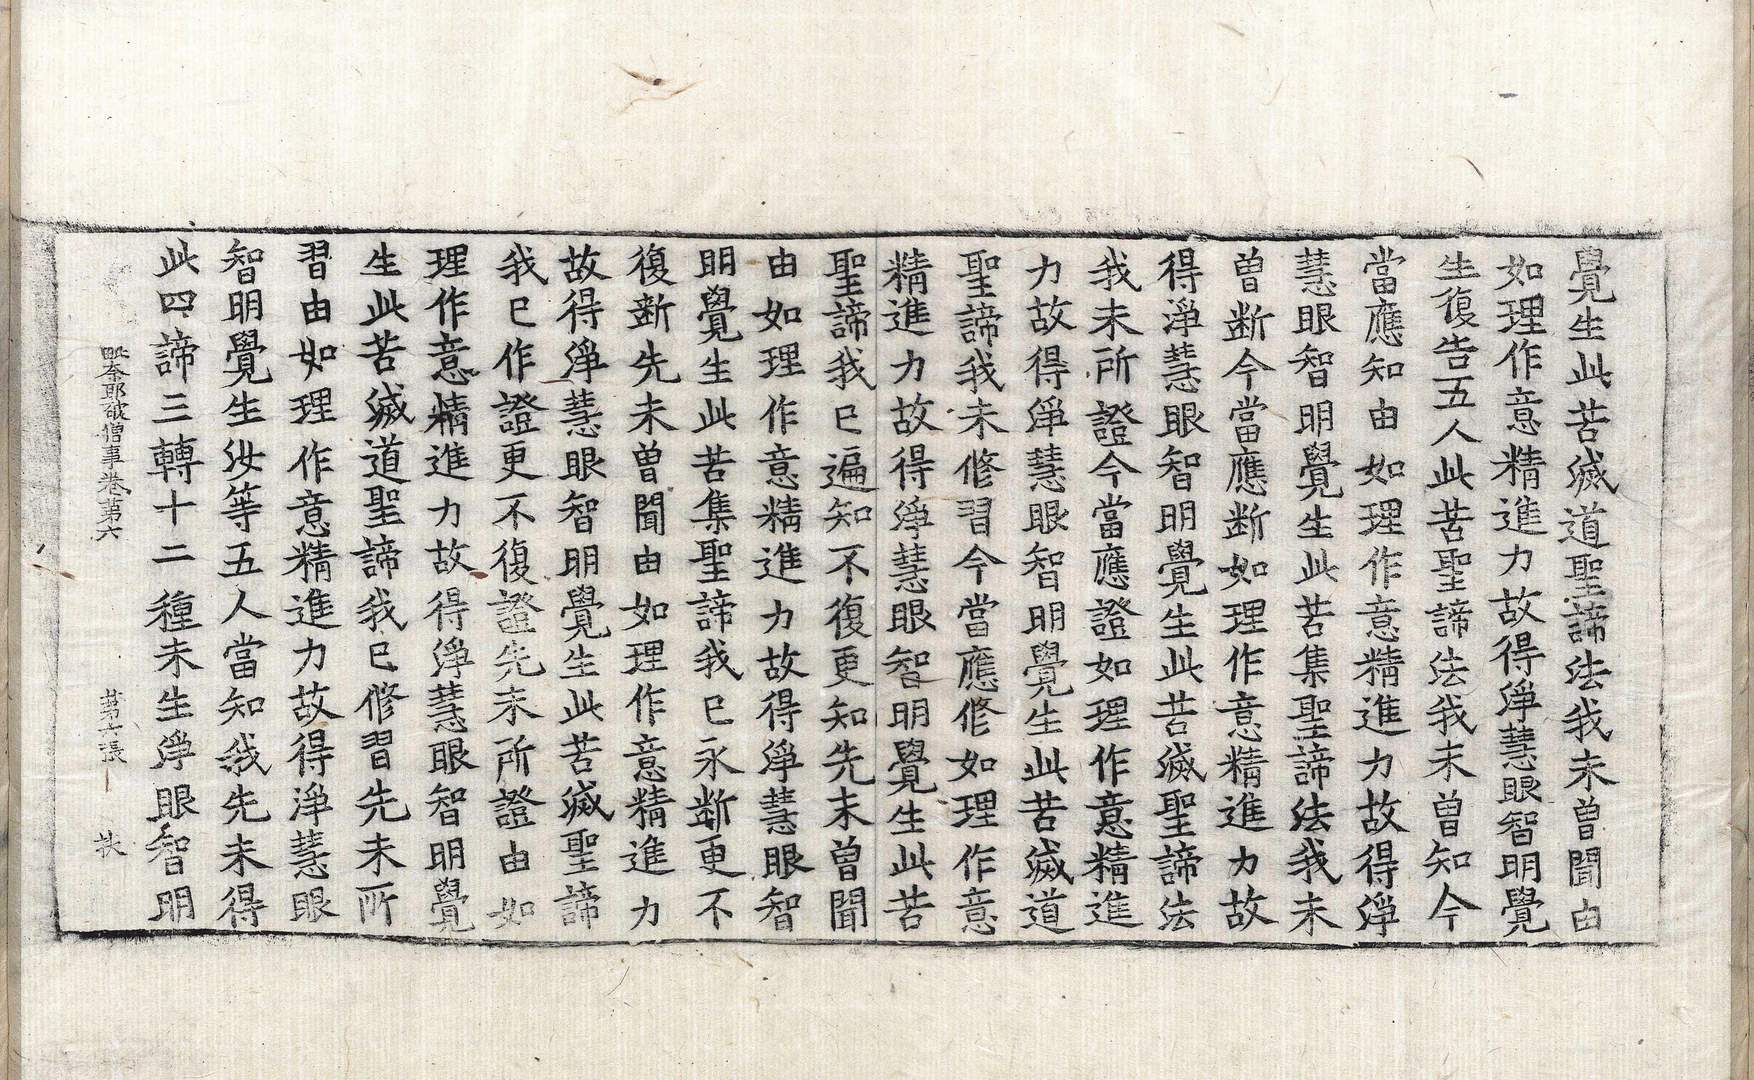 覺生此苦滅道聖諦法我未曾聞由
如理作意精進力故得淨慧眼智明覺
生復告五人此苦聖諦法我未曾知今
當應知由如理作意精進力故得淨
慧眼智明覺生此苦集聖諦法我未
曾断今當應断如理作意精進力故
得淨慧眼智明覺生此苦滅聖諦法
我未所證今當應證如理作意精進
力故得淨慧眼智明覺生此苦滅道
聖諦我未修習今當應修如理作意
精進力故得淨慧眼智明覺生此苦
聖諦我已遍知不復更知先未曾聞
由如理作意精進力故得淨慧眼智
明覺生此苦集聖諦我已永断更不
復断先未曾聞由如理作意精進力
故得淨慧眼智明覺生此苦滅聖諦
我已作證更不復證先未所證由如
理作意精進力故得淨慧眼智明覺
生此苦滅道聖諦我已修習先未所
習由如理作意精進力故得淨慧眼
智明覺生汝等五人當知我先未得
此四諦三轉十二種未生淨眼智明
毗奈耶破僧事卷苐六 苐六張 扶